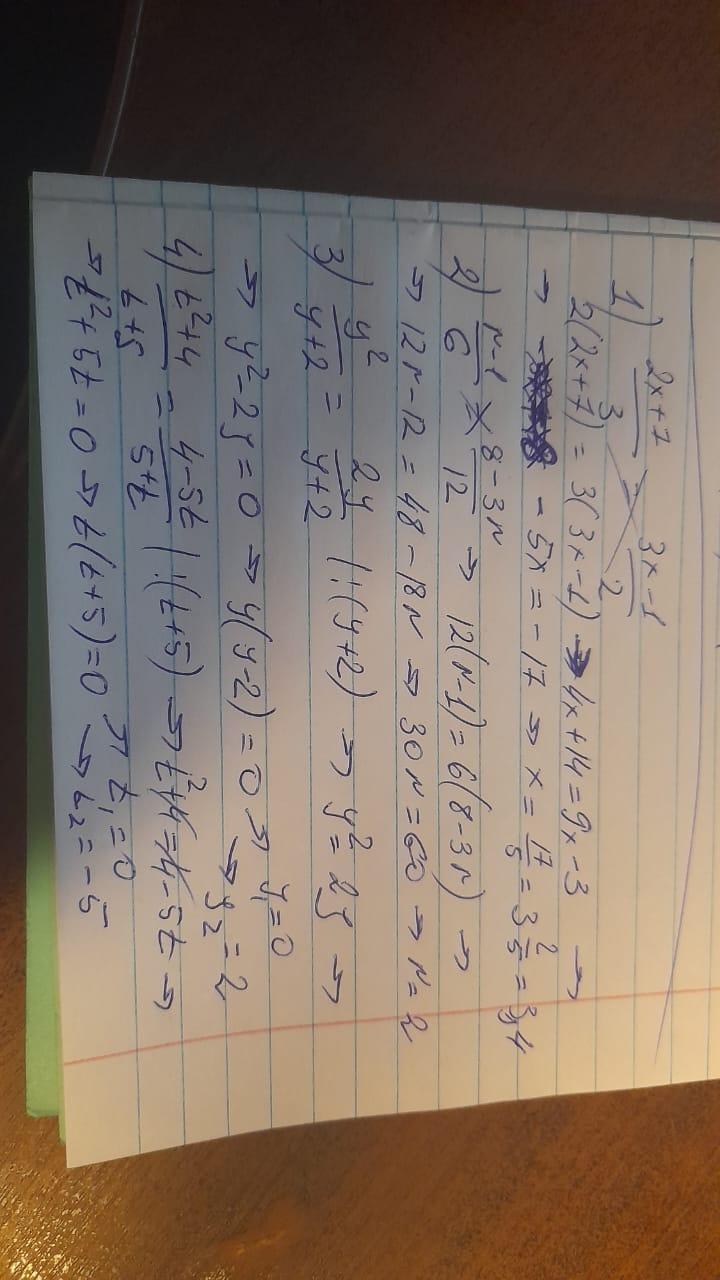 1) (2x+7)/3 = (3x-1)/2
2(2x+7) = 3(3x-1) → 4x+14 = 9x-3 →
→ -5x = -17 → x = 17/5 = 3 2/5 = 3,4
2) (n-1)/6 = (8-3n)/12 → 12(n-1) = 6(8-3n) →
→ 12n-12 = 48-18n → 30n = 60 → n = 2
3) y²/(y+2) = 2y/(y+2) |:(y+2) → y² = 2y →
→ y²-2y = 0 → y(y-2) = 0 → y₁ = 0
→ y₂ = 2
4) (t²+4)/(t+5) = (4-5t)/(5+t) |:(t+5) → t²+4 = 4-5t →
→ t²+5t = 0 → t(t+5) = 0 → t₁ = 0
→ t₂ = -5